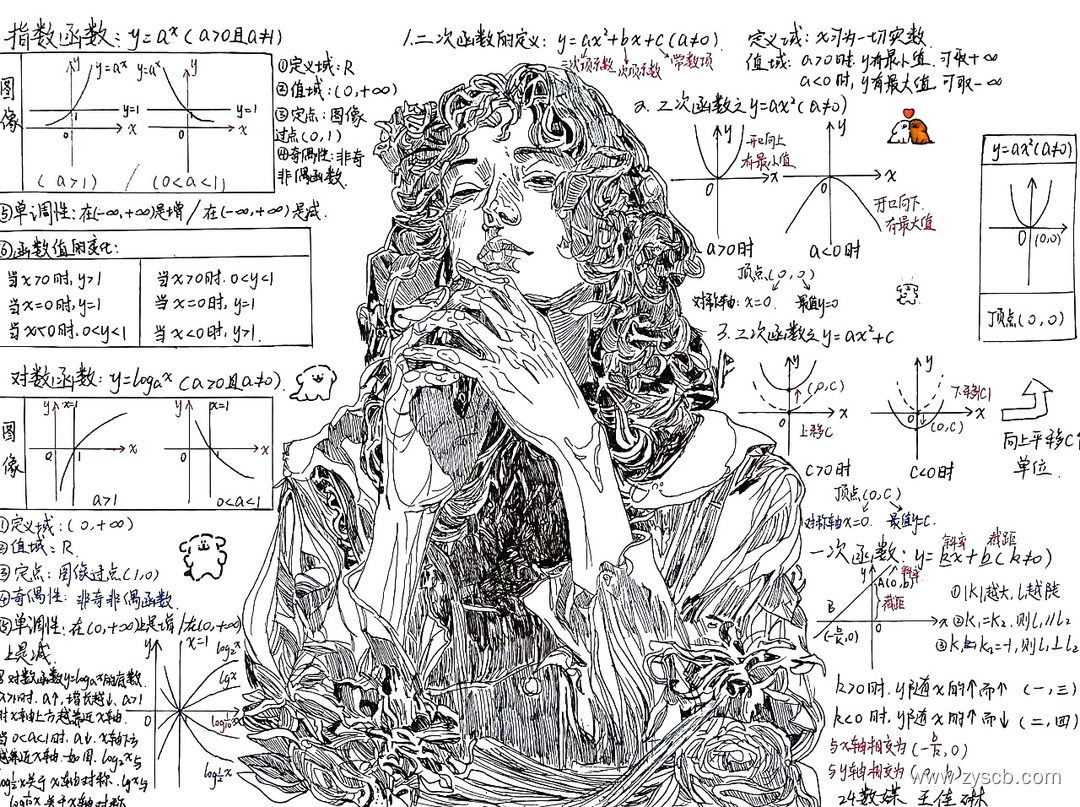 指数函数：y=aˣ（a>0且a≠1）
图像
y=aˣ
y=aˣ
y
y
y=1
y=1
1
1
0
0
x
x
（a>1）
（0<a<1）
①定义域：R
②值域：(0,+∞)
③定点：图像
过点(0,1)
④奇偶性：非奇
非偶函数
⑤单调性：在(-∞,+∞)是增/在(-∞,+∞)是减.
⑥函数值的变化：
当x>0时,y>1
当x=0时,y=1
当x<0时.0<y<1
当x>0时.0<y<1
当x=0时,y=1
当x<0时,y>1.
对数函数：y=logₐx（a>0且a≠0）.
图像
y
x=1
0
1
x
a>1
y
x=1
0
1
x
0<a<1
①定义域：(0,+∞)
②值域：R
③定点：图像过点(1,0)
④奇偶性：非奇非偶函数.
⑤单调性：在(0,+∞)上是增/在(0,+∞)
上是减.
对数函数y=logₐx的底数
a>1时.a↑,增长越↓.a>1
时x轴上方越靠近x轴.
当0<a<1时,a↓.x轴下方
越靠近x轴.如图.log₂x与
x关于x轴对称.lgx与
关于x轴对称
y
x=1
log₂x
lgx
0
x
1.二次函数的定义：y=ax²+bx+c(a≠0).
二次项系数
一次项系数
常数项
定义域：x可为一切实数.
值域：a>0时,y有最小值.可取+∞
a<0时,y有最大值.可取-∞
2.二次函数之y=ax²(a≠0)
y
开口向上
有最小值
x
0
a>0时
y
x
0
开口向下
有最大值
a<0时
顶点(0,0)
对称轴：x=0.
最值y=0
y=ax²(a≠0)
y
0
(0,0)
x
顶点(0,0)
3.二次函数之y=ax²+c
y
(0,C)
0
x
上移C
C>0时
y
下平移|C|
0
x
(0,C)
C<0时
向上平移C个
单位.
顶点(0,C)
对称轴x=0.
最值y=C.
一次函数：y=kx+b(k≠0)
斜率
截距
y
斜率
A(0,b)
截距
B
(-b/k,0)
0
x
①|K|越大,l越陡
②K₁=K₂.则l₁∥l₂
③K₁·K₂=-1,则l₁⊥l₂
k>0时.y随x的↑而↑（一,三）
k<0时.y随x的↑而↓（二,四）
与x轴相交为(-b/k,0)
与y轴相交为(0,b)
www.zyscb.com